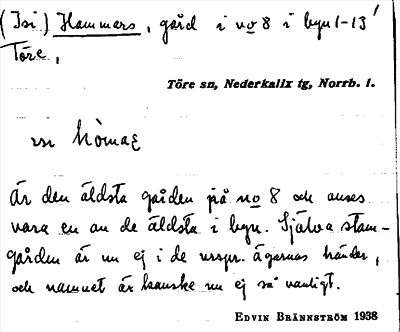 (Isi) Hammers, gård i no 8 i byn 1-13
Töre,
Töre sn, Nederkalix tg, Norrb. l.
Är den äldsta gården på no 8 och anses
vara en av de äldsta i byn. Själva stam-
gården är nu ej i de urspr. ägarnas händer,
och namnet är kanske nu ej så vanligt.
EDVIN BRÄNNSTRÖM 1938